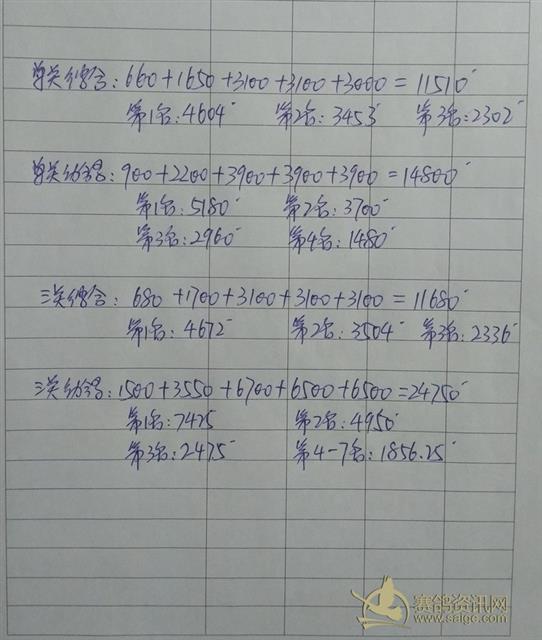 单关综合：660+1650+3100+3100+3000=11510
第1名：4604 第2名：3453 第3名：2302
单关：900+2200+3900+3900+3900=14800
第1名：5180 第2名：3700
第3名：2960 第4名：1480
三关综合：680+1700+3100+3100+3100=11680
第1名：4672 第2名：3504 第3名：2336
三关：1500+3550+6700+6500+6500=24750
第1名：7425 第2名：4950
第3名：2475 第4-7名：1856.25
赛鸽资讯网
www.saige.com